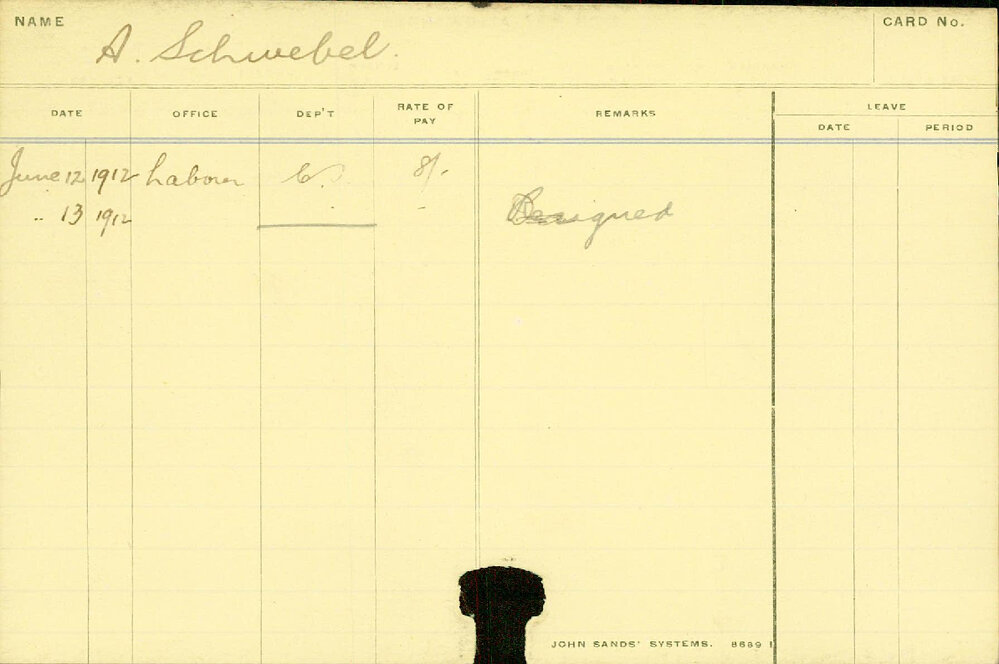 NAME A. Schwebel. CARD No.
DATE OFFICE DEP'T RATE OF PAY REMARKS LEAVE
DATE PERIOD
June 12 1912 Labour 8/-
" 13 1912
JOHN SANDS' SYSTEMS. 8689